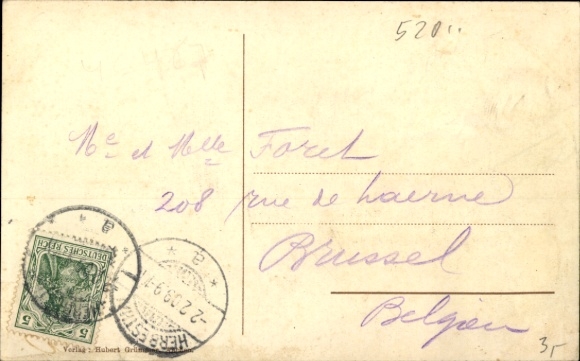 520
Me et Mlle Foret
208 rue de Laerne
Brussel
Belgien
DEUTSCHES REICH
5 5
HERBESTHAL
-2.2.09.9-
* a
Verlag: Hubert
3,-